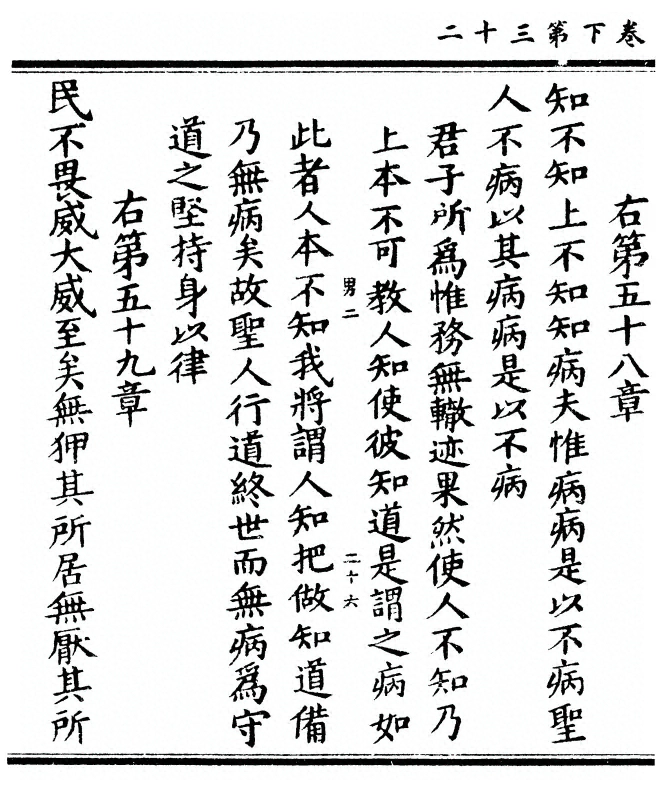 卷下第三十二
右第五十八章
知不知上不知知病夫惟病病是以不病聖
人不病以其病病是以不病
君子所爲惟務無轍迹果然使人不知乃
上本不可教人知使彼知道是謂之病如
男二
二十六
此者人本不知我將謂人知把做知道備
乃無病矣故聖人行道終世而無病爲守
道之堅持身以律
右第五十九章
民不畏威大威至矣無狎其所居無厭其所